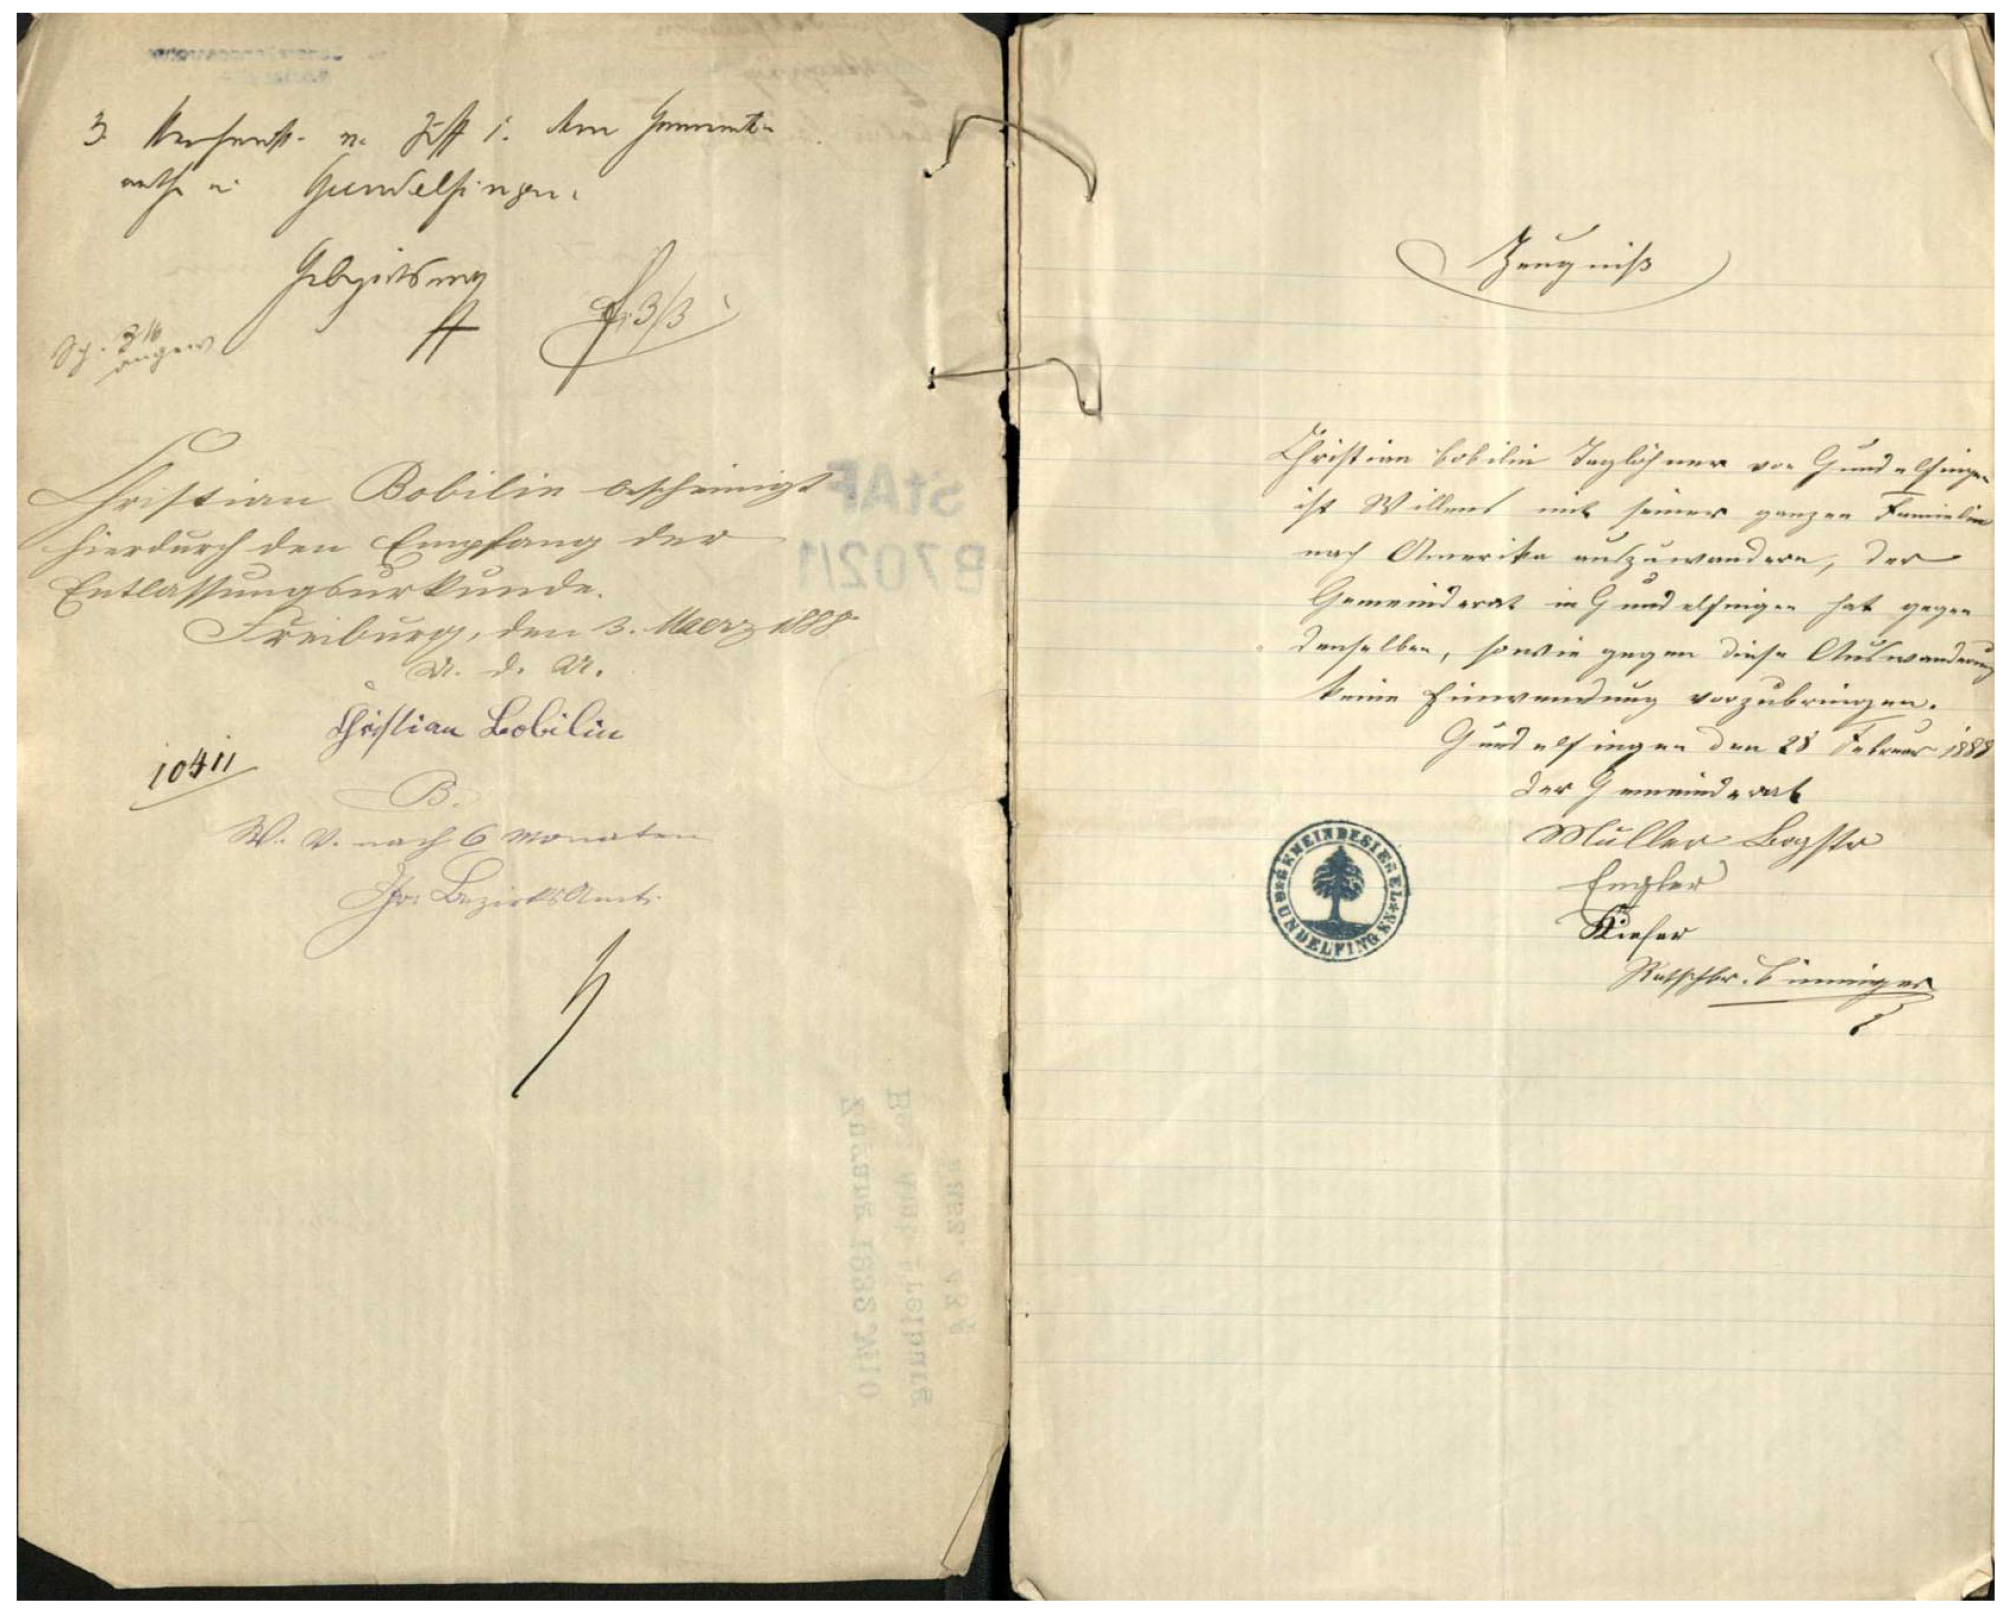 3. Nachricht. n. Ziff 1. dem Gemeinde-
rathe in Gundelfingen.
3/3
Christian Bobilin bescheinigt
hierdurch den Empfang der
Entlassungsurkunde.
Freiburg, den 3. Maerz 1888.
Christian Bobilin
10411
B.
W. V. nach 6 Monaten
Gr. Bezirks Amt.
StAF
B702/1
Zugang 1982 N110
Bez. Amt Freiburg
Zeugniß
Christian Bobilin Taglöhner von Gundelfingen
ist Willens mit seiner ganzen Familie
nach Amerika auszuwandern, der
Gemeinderat in Gundelfingen hat gegen
denselben, sowie gegen diese Auswanderung
keine Einwendung vorzubringen.
Gundelfingen den 28 Februar 1888
der Gemeinderat
Müller Bgstr
Engler
Kiefer
Ratschbr. Binninger
GEMEINDESIEGEL GUNDELFINGEN